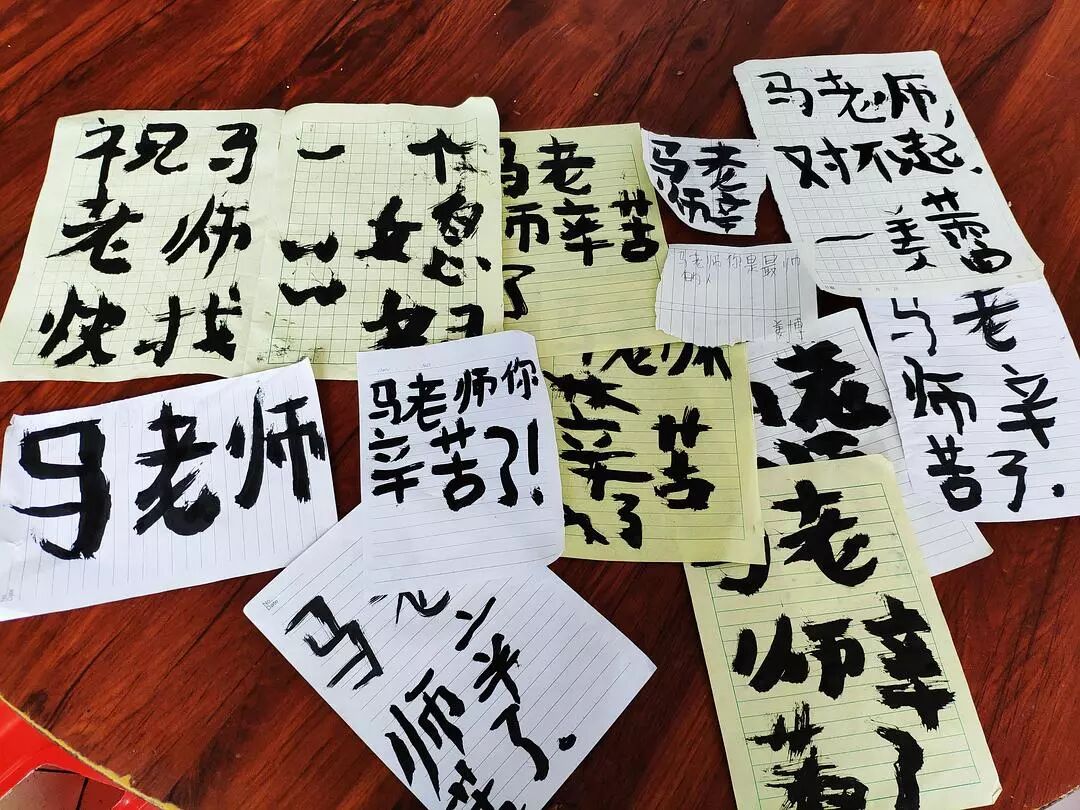 祝马
老师
快找
一个
马老
师辛苦
了
马老
师辛
马老师你是最帅
的人
马老师,
对不起.
一姜蕾
马老师
马老师你
辛苦了!
老师
辛苦
了
老
马老
师辛
苦了.
马老
师辛
了.
马老
师辛
苦了